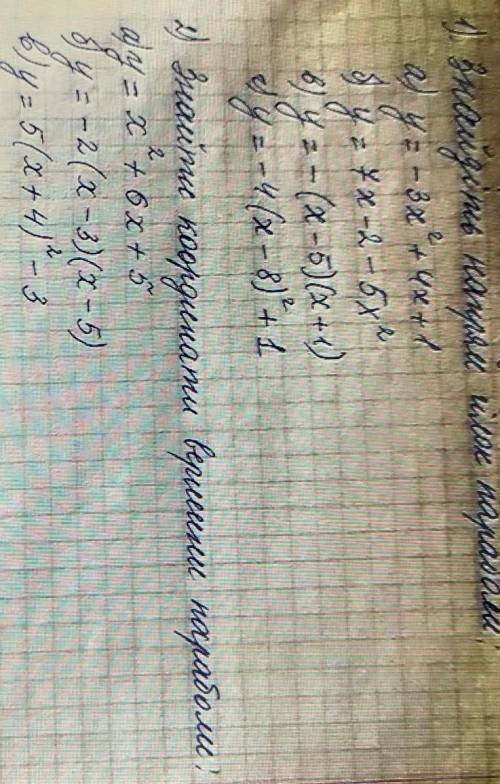 1) Знайдіть напрям гілок параболи:
а) y = -3x² + 4x + 1
б) y = 7x - 2 - 5x²
в) y = -(x - 5)(x + 1)
г) y = -4(x - 8)² + 1
2) Знайти координати вершини параболи:
а) y = x² + 6x + 5
б) y = -2(x - 3)(x - 5)
в) y = 5(x + 4)² - 3